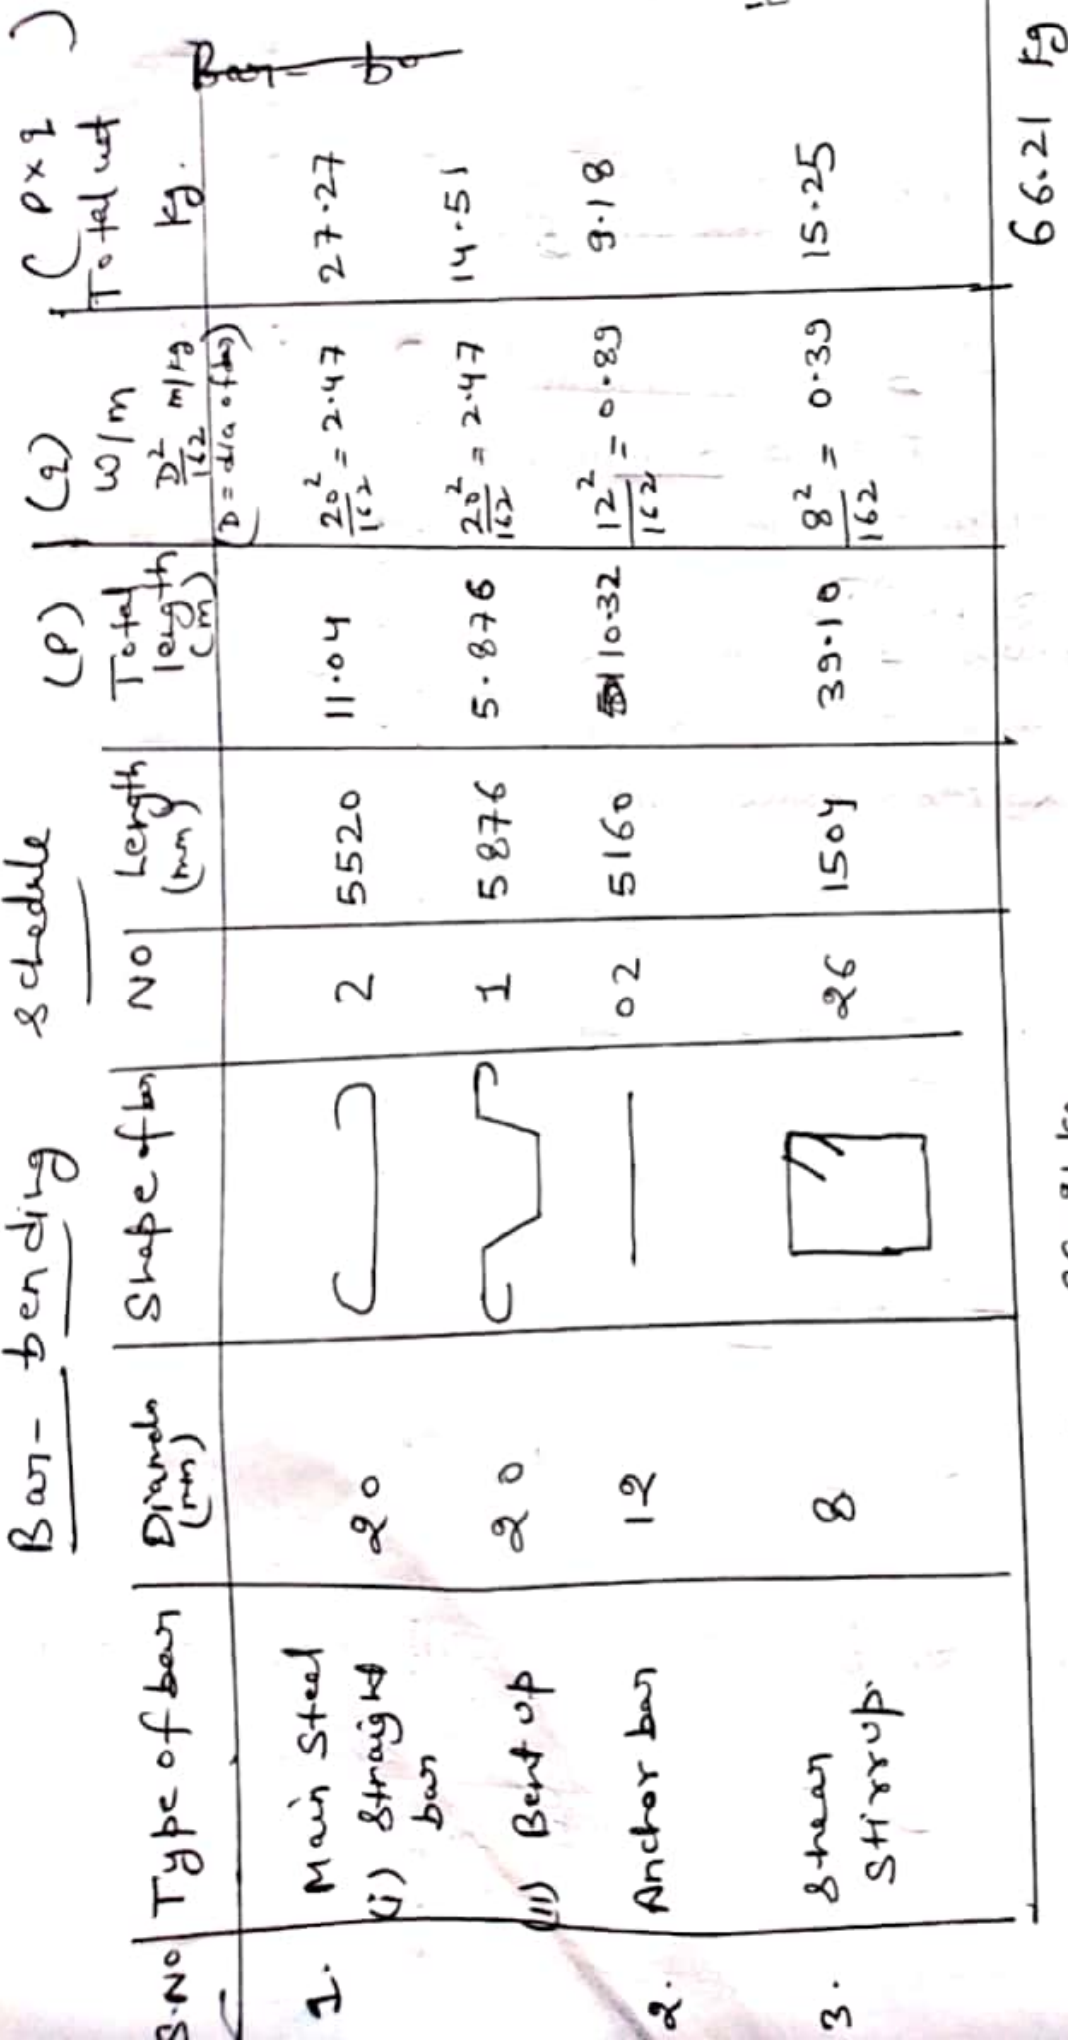 Bar-bending schedule
(P) (q) (P x q)
S.NO Type of bar Diameter (mm) Shape of bar NO Length (mm) Total length (m) W/m D²/162 m/kg (D = dia of bar) Total wt kg.
1. Main Steel
(i) Straight bar 20 2 5520 11.04 20²/162 = 2.47 27.27
(ii) Bent up 20 1 5876 5.876 20²/162 = 2.47 14.51
2. Anchor bar 12 02 5160 10.32 12²/162 = 0.89 9.18
3. Shear Stirrup. 8 26 1504 39.10 8²/162 = 0.39 15.25
66.21 kg